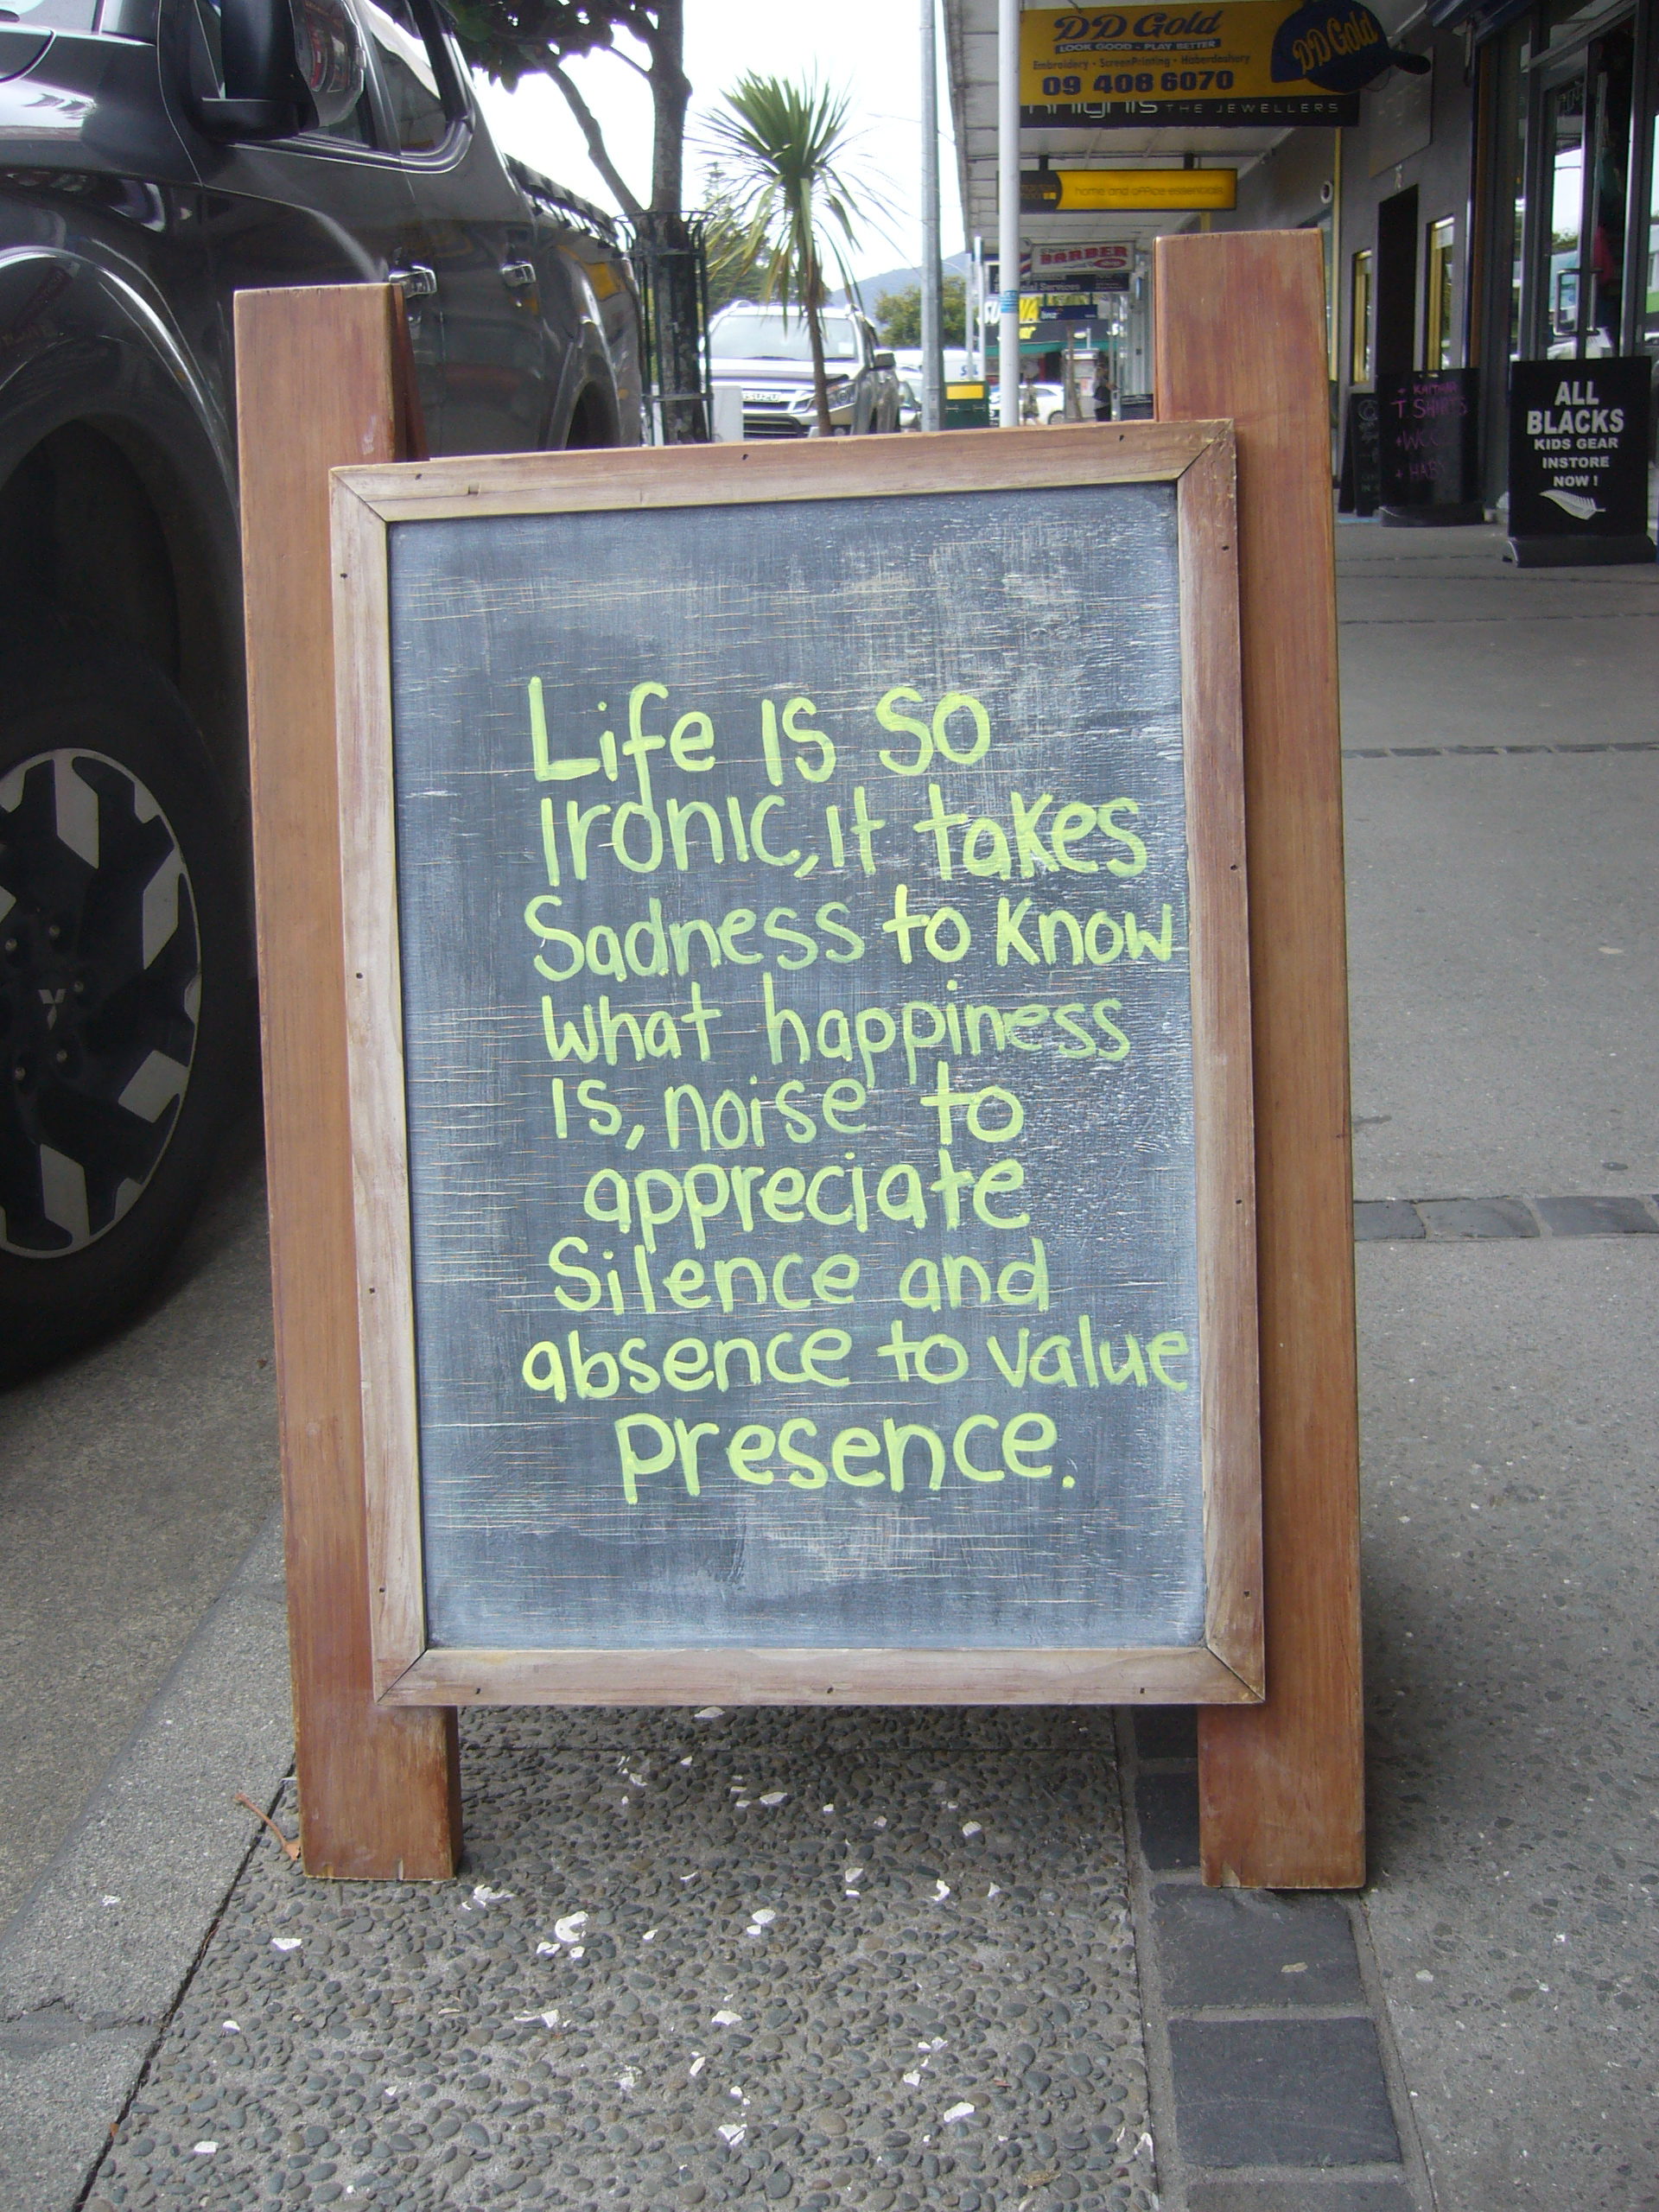 DD Gold
LOOK GOOD - PLAY BETTER
Embroidery - ScreenPrinting - Haberdashery
09 408 6070
DD Gold
knights THE JEWELLERS
home and office essentials
BARBER
ISUZU
ALL
BLACKS
KIDS GEAR
INSTORE
NOW !
T SHIRTS
Life is so
ironic, it takes
Sadness to know
what happiness
is, noise to
appreciate
Silence and
absence to value
presence.